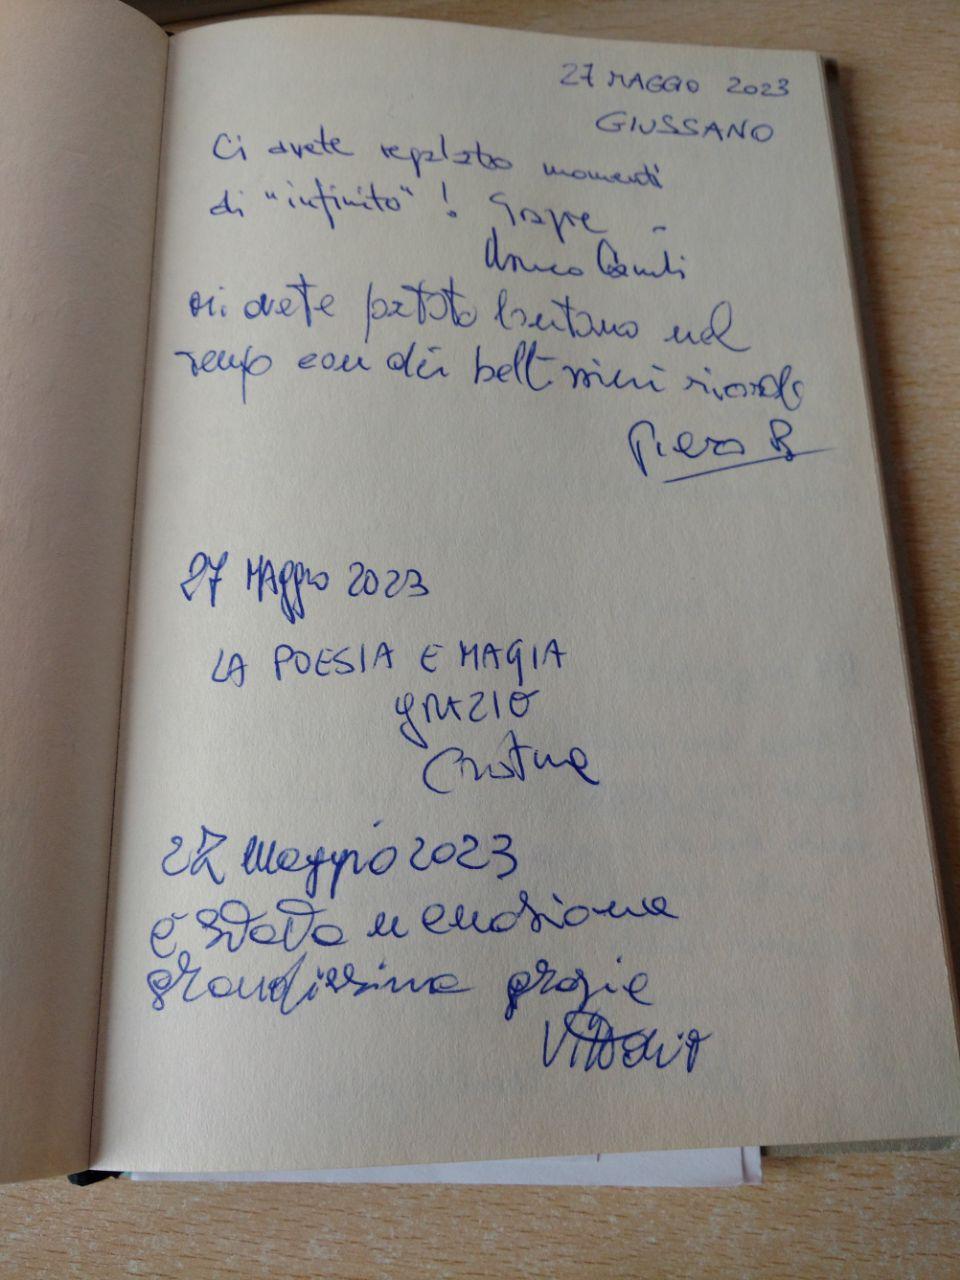 27 MAGGIO 2023
GIUSSANO
Ci avete regalato momenti
di "infinito"! Grazie
mi avete portato lontano nel
tempo con dei bellissimi ricordi
Piero B
27 MAggio 2023
LA POESIA E MAGIA
grazie
Cristina
27 Maggio 2023
è stata un emozione
grandissima grazie
Vittoria